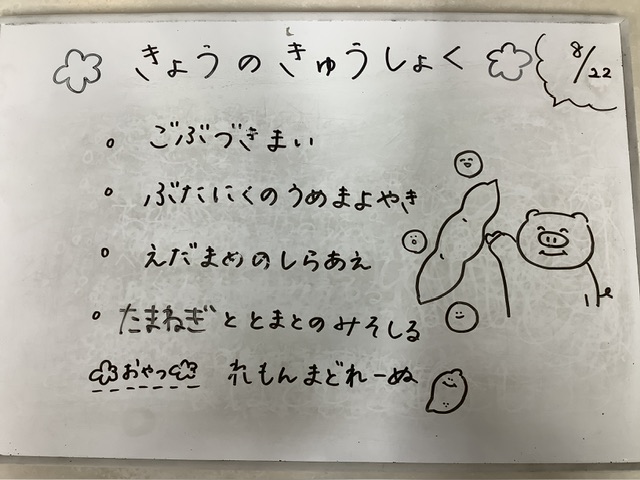 きょうのきゅうしょく
8/22
ごぶづきまい
ぶたにくのうめまよやき
えだまめのしらあえ
たまねぎととまとのみそしる
おやつ れもんまどれーぬ